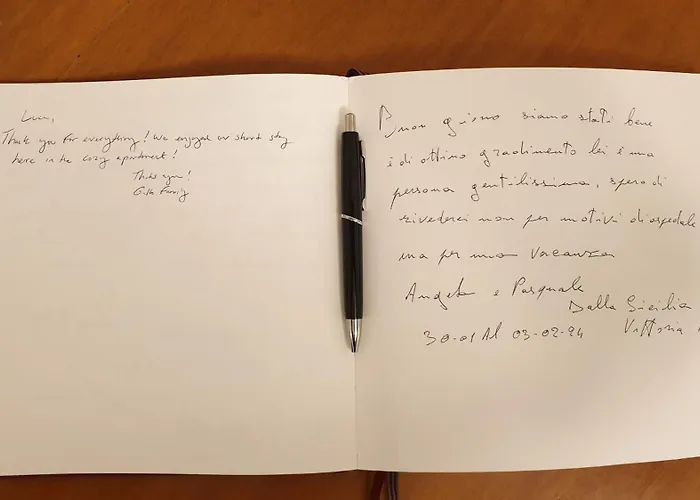 Thank you for everything! We enjoyed our short stay
here in the cozy apartment!
Thank you!
Family
Buon giorno siamo stati bene
è di ottimo gradimento lei è una
persona gentilissima, spero di
rivederci non per motivi di ospedale
ma per una vacanza
Angela e Pasquale
Dalla Sicilia
Vittoria
30-01 Al 03-02-24